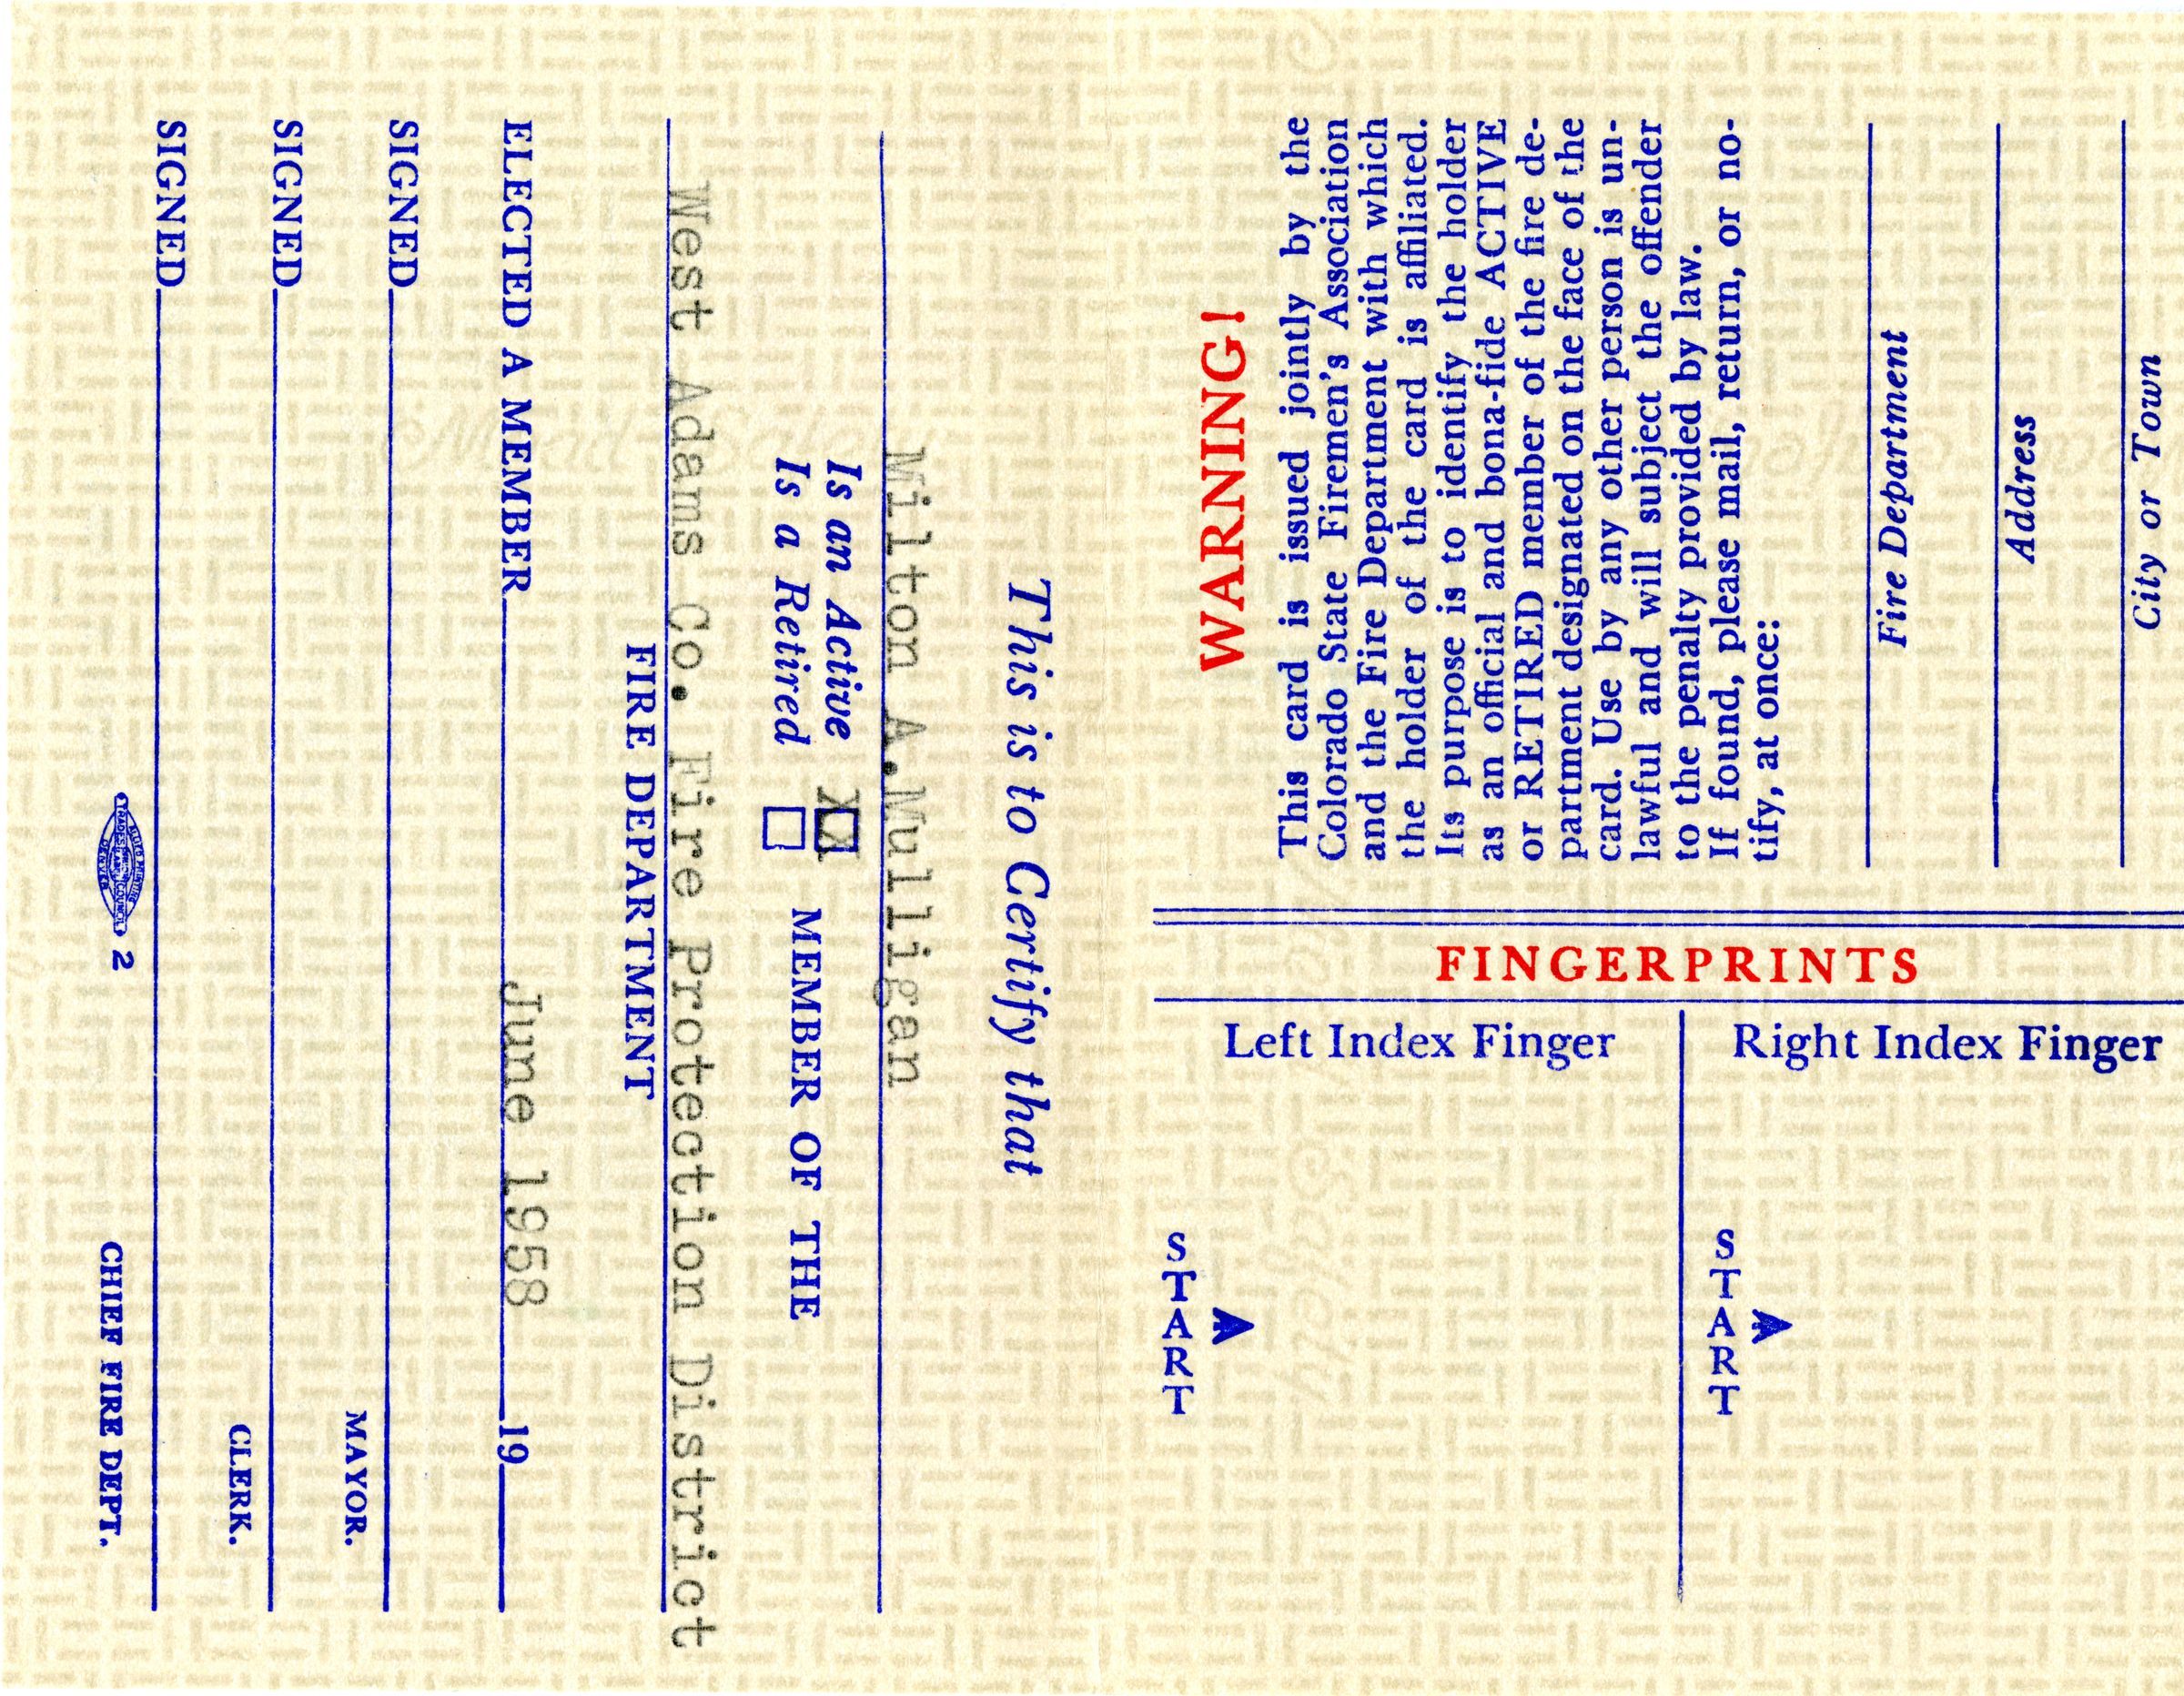 This is to Certify that
Milton A. Mulligan
Is an Active XX
Is a Retired
MEMBER OF THE
West Adams Co. Fire Protection District
FIRE DEPARTMENT
ELECTED A MEMBER June 1958 19
SIGNED
MAYOR.
SIGNED
CLERK.
SIGNED
CHIEF FIRE DEPT.
2
WARNING!
This card is issued jointly by the
Colorado State Firemen's Association
and the Fire Department with which
the holder of the card is affiliated.
Its purpose is to identify the holder
as an official and bona-fide ACTIVE
or RETIRED member of the fire de-
partment designated on the face of the
card. Use by any other person is un-
lawful and will subject the offender
to the penalty provided by law.
If found, please mail, return, or no-
tify, at once:
Fire Department
Address
City or Town
FINGERPRINTS
Left Index Finger
Right Index Finger
START
START